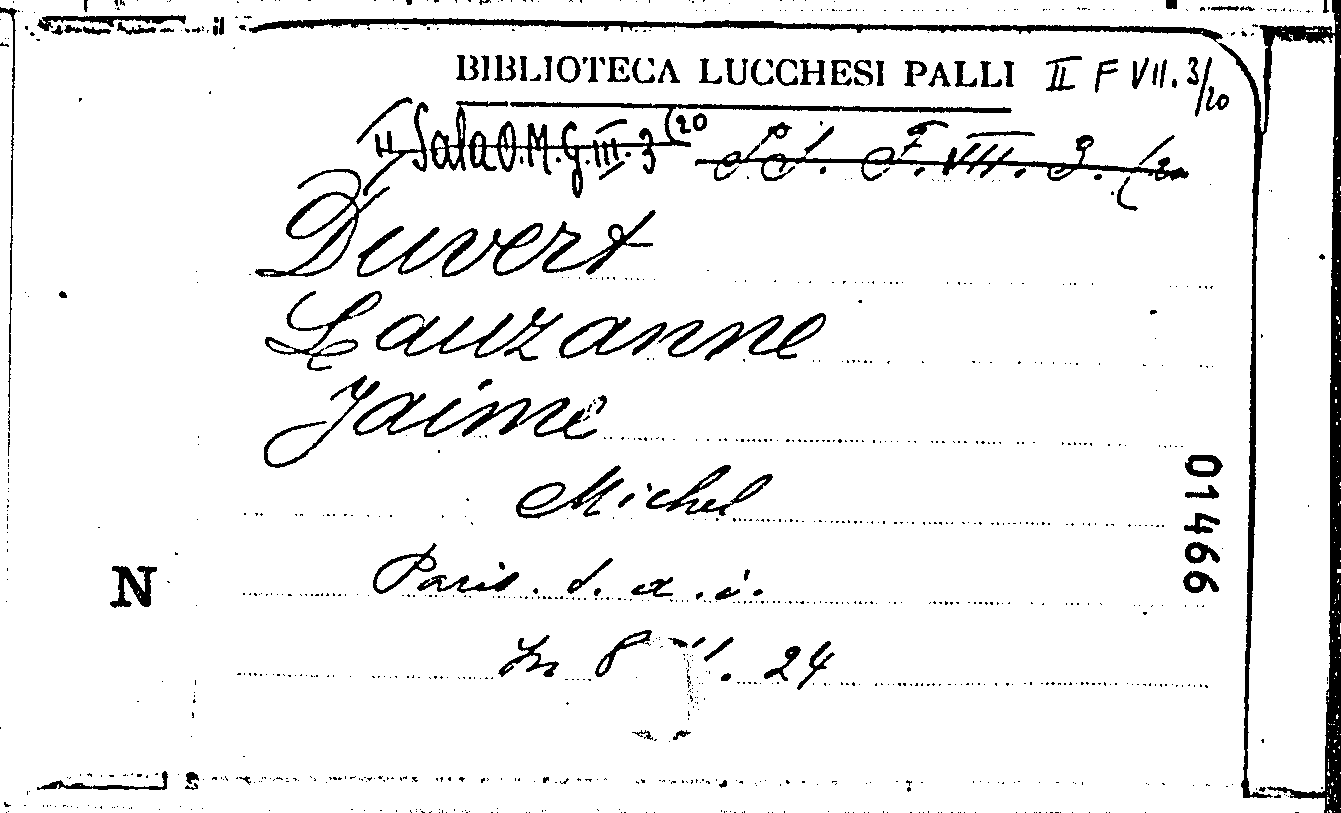 BIBLIOTECA LUCCHESI PALLI II F VII. 3/20
II Sala O.M.G. III. 3 (20
F. VII. 3. (20
Duvert
Lauzanne
Jaime
Michel
Paris. s. a. i.
In 8 . 24
N
01466